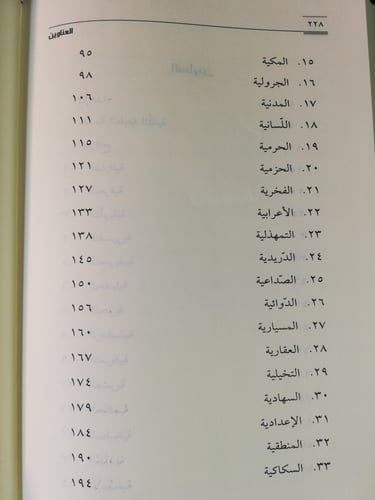 ٢٢٨ العناوين
١٥. المكية ٩٥
١٦. الجرولية ٩٨
١٧. المدنية ١٠٦
١٨. اللّسانية ١١١
١٩. الحرمية ١١٥
٢٠. الحزمية ١٢١
٢١. الفخرية ١٢٧
٢٢. الأعرابية ١٣٣
٢٣. التمهذلية ١٣٨
٢٤. الدّريدية ١٤٥
٢٥. الصّداعية ١٥٠
٢٦. الدّوائية ١٥٦
٢٧. المسيارية ١٦٠
٢٨. العقارية ١٦٧
٢٩. التخيلية ١٧٤
٣٠. السهادية ١٧٩
٣١. الإعدادية ١٨٤
٣٢. المنطقية ١٩٠
٣٣. السكاكية ١٩٤